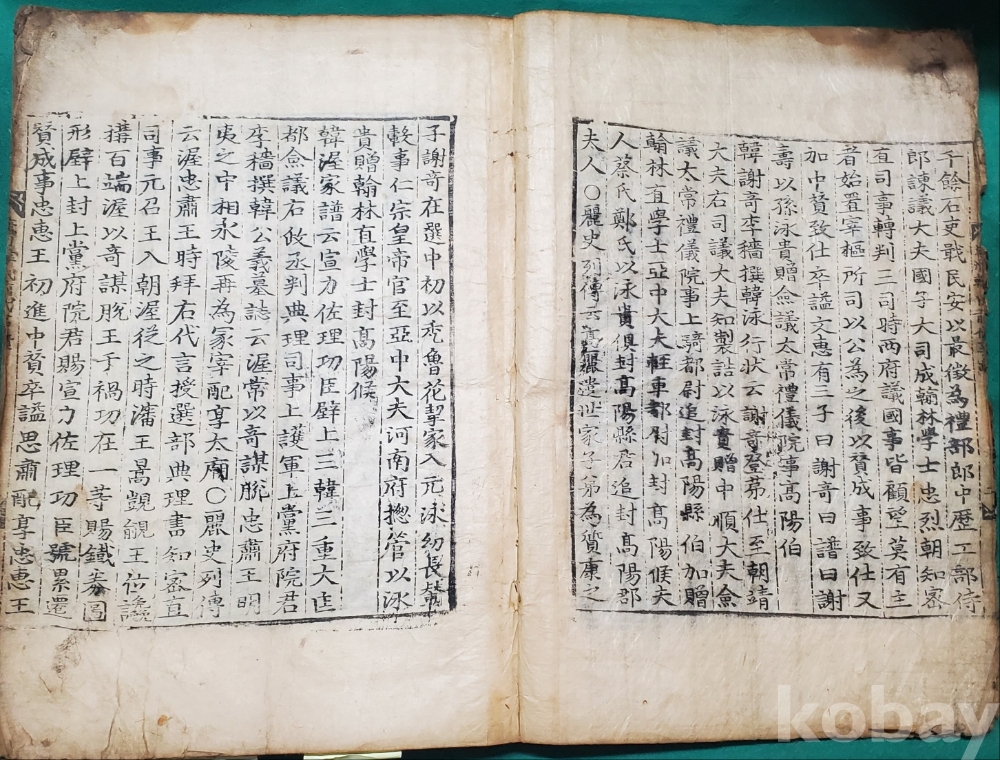 千餘石吏戢民安以最徵為禮部郎中歷工部侍
郎諫議大夫國子大司成翰林學士忠烈朝知密
直司事轉判三司時兩府議國事皆顧望莫有主
者始置宰樞所司以公為之後以贊成事致仕又
加中贊致仕卒謚文惠有三子曰謝奇曰譜曰謝
壽以孫泳貴贈僉議太常禮儀院事高陽伯
韓謝奇李穡撰韓泳行狀云謝奇登第仕至朝靖
大夫右司議大夫知製誥以泳貴贈中順大夫僉
議太常禮儀院事上騎都尉追封高陽縣伯加贈
翰林直學士亞中大夫輕車都尉加封高陽候夫
人蔡氏鄭氏以泳貴俱封高陽縣君追封高陽郡
夫人○麗史列傳云高麗遣世家子弟為質康之
子謝奇在選中初以禿魯花挈家入元泳幼長
事仁宗皇帝官至亞中大夫河南府摠管以泳
貴贈翰林直學士封高陽候
韓渥家譜云宣力佐理功臣壁上三韓三重大匡
都僉議右政丞判典理司事上護軍上黨府院君
李穡撰韓公義墓誌云渥常以奇謀脫忠肅王明
夷之中相永陵再為冢宰配享太廟○麗史列傳
云渥忠肅王時拜右代言授選部典理書知密直
司事元召王入朝渥從之時瀋王暠覬覦王位讒
構百端渥以奇謀脫王于禍功在一等賜鐵券圖
形壁上封上黨府院君賜宣力佐理功臣號累遷
贊成事忠惠王初進中贊卒謚思肅配享忠惠王
kobay